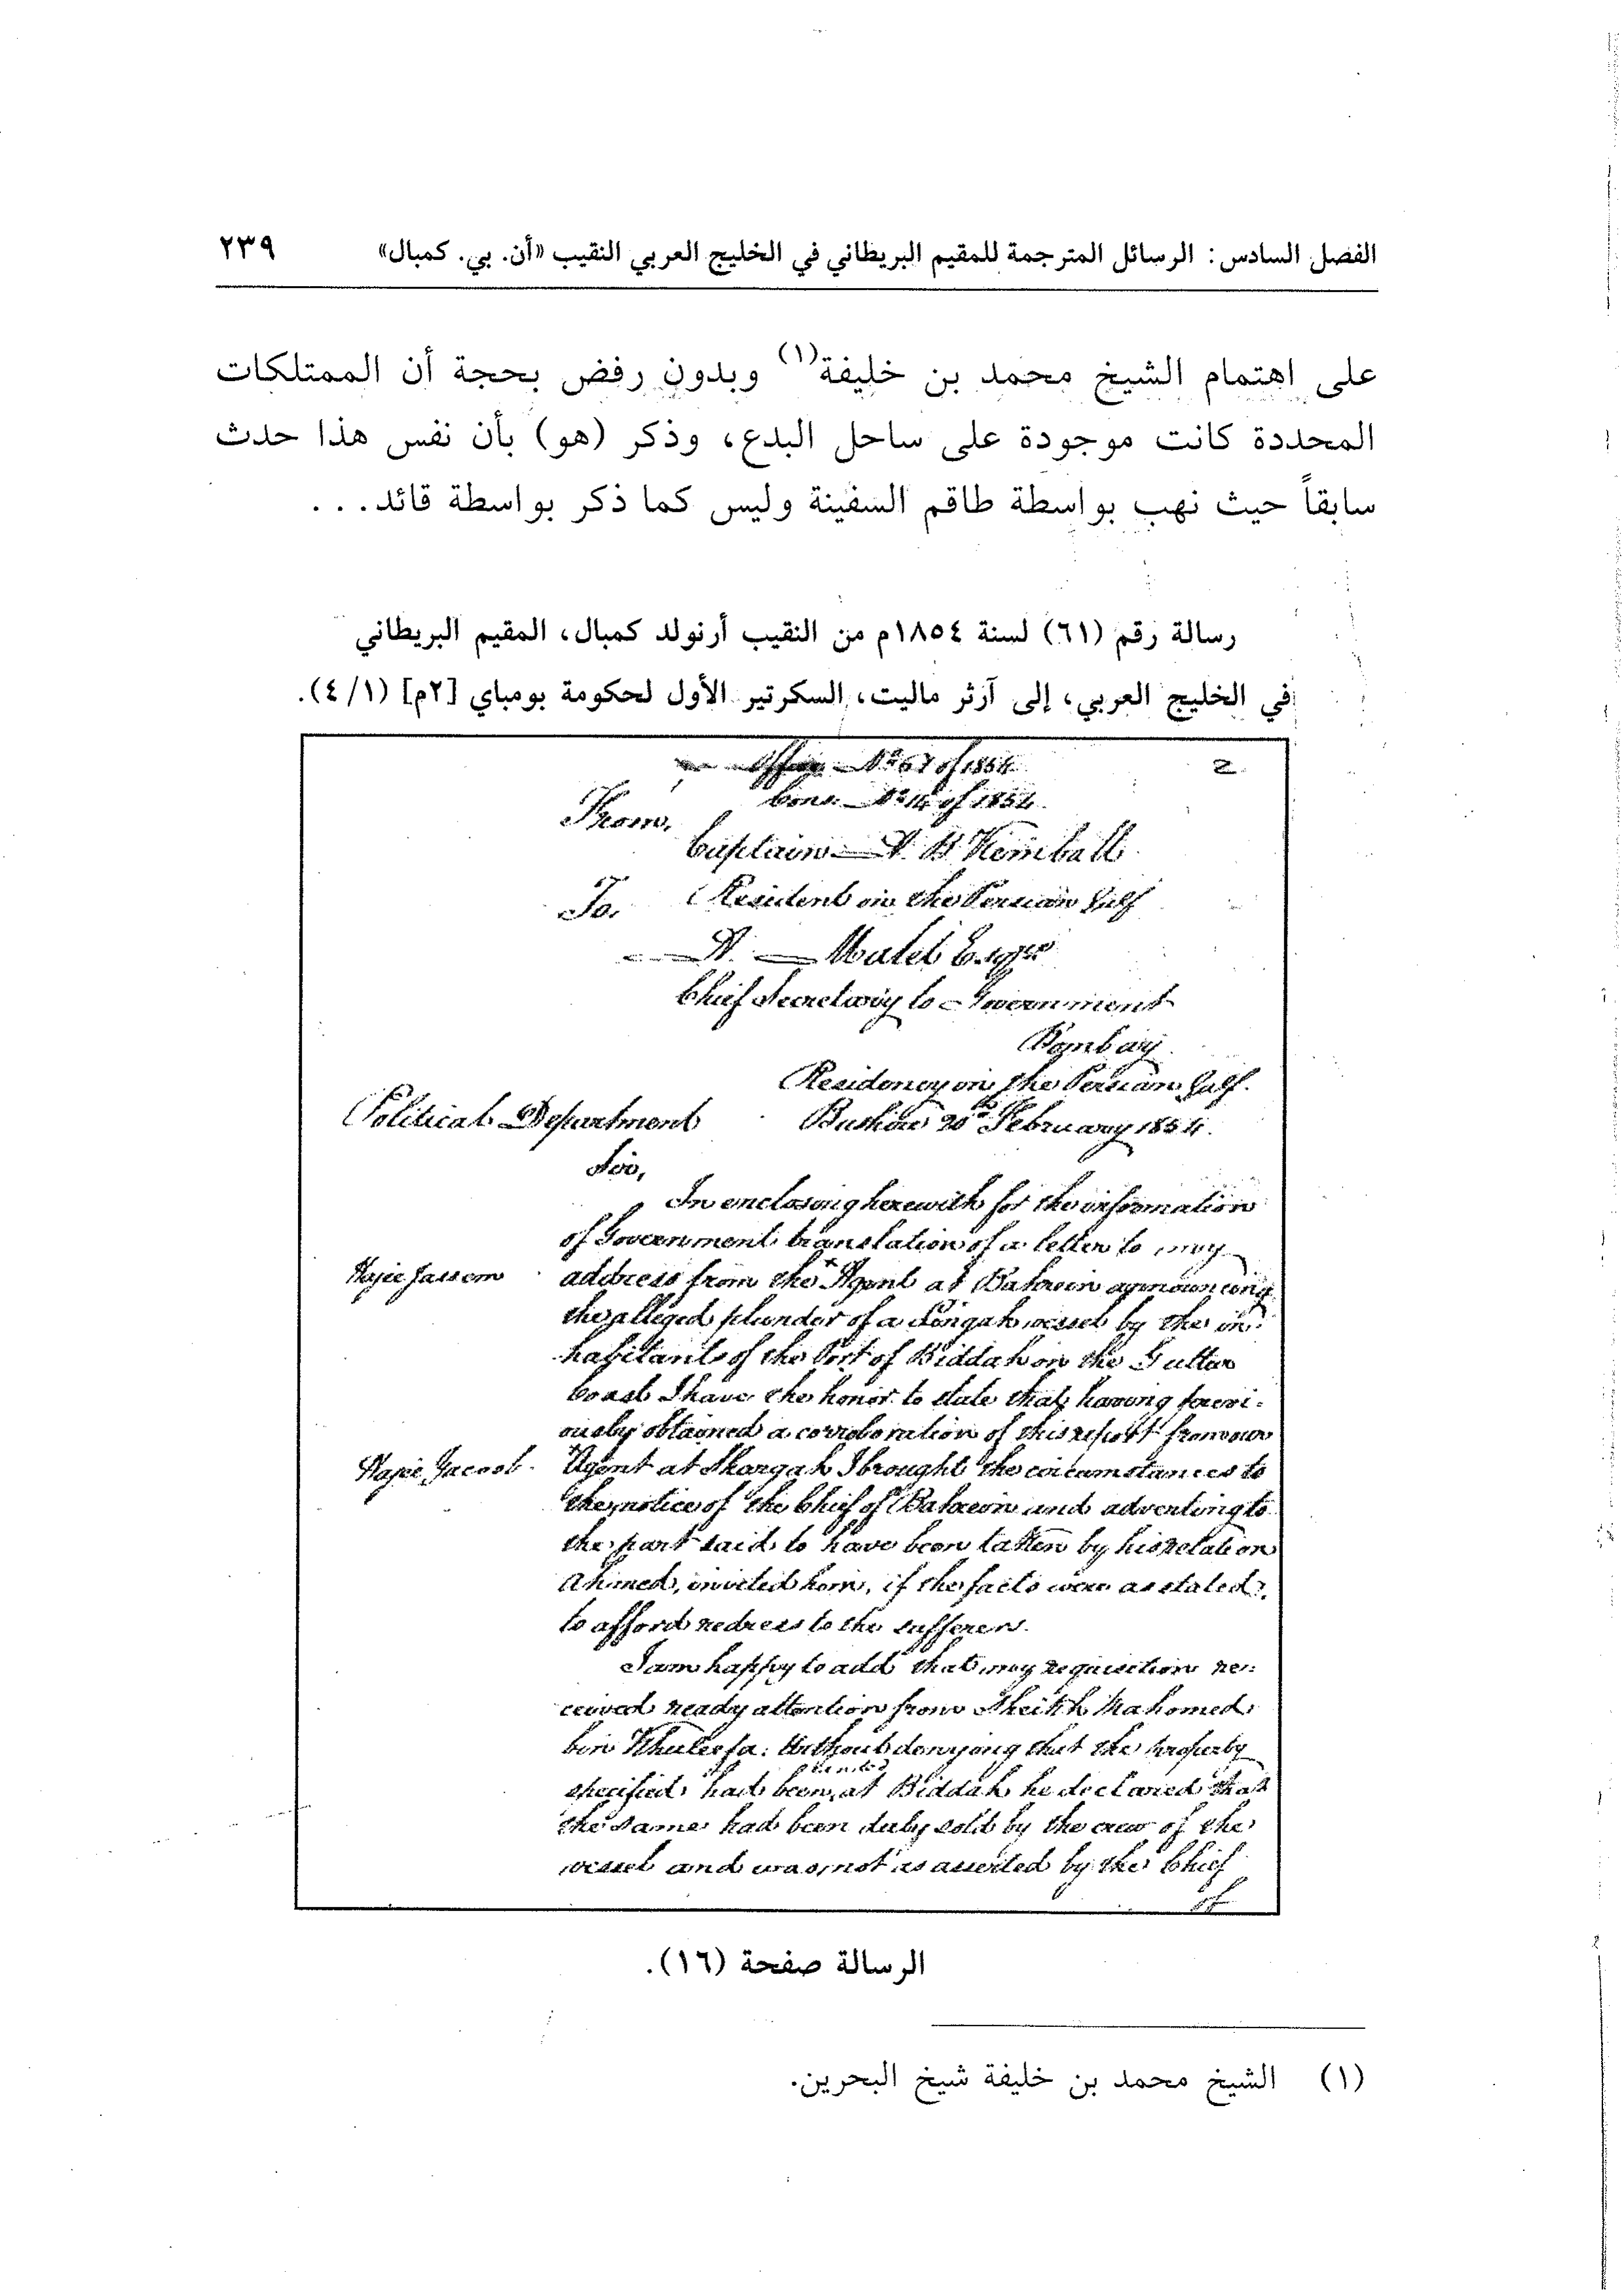 الفصل السادس: الرسائل المترجمة للمقيم البريطاني في الخليج العربي النقيب «أن. بي. كمبال» ٢٣٩
على اهتمام الشيخ محمد بن خليفة(١) وبدون رفض بحجة أن الممتلكات
المحددة كانت موجودة على ساحل البدع، وذكر (هو) بأن نفس هذا حدث
سابقاً حيث نهب بواسطة طاقم السفينة وليس كما ذكر بواسطة قائد...
رسالة رقم (٦١) لسنة ١٨٥٤م من النقيب أرنولد كمبال، المقيم البريطاني
في الخليج العربي، إلى آرثر ماليت، السكرتير الأول لحكومة بومباي [٢م] (٤/١).
2
No 61 of 1854
No 14 of 1854
From,
Captain A. B. Kemball
Resident in the Persian Gulf
To,
A. Malet Esqre
Chief Secretary to Government
Bombay
Residency in the Persian Gulf.
Political Department
Bushire 20th February 1854.
Sir,
In enclosing herewith for the information
of Government translation of a letter to my
Hajee Jassem
address from the Agent at Bahrein announcing
the alleged plunder of a Lingah vessel by the in-
habitants of the Port of Biddah on the Guttur
Coast I have the honor to state that having previ-
ously obtained a corroboration of this report from our
Hajee Yacoob.
Agent at Shargah I brought the circumstances to
the notice of the Chief of Bahrein and adverting to
the part said to have been taken by his relation
Ahmed, invited him, if the facts were as stated,
to afford redress to the sufferers.
I am happy to add that my requisition re-
ceived ready attention from Sheikh Mahomed
bin Khuleefa. Without denying that the property
specified had been landed at Biddah he declared that
the same had been duly sold by the crew of the
vessel and was not as asserted by the Chief
of
الرسالة صفحة (١٦).
(١) الشيخ محمد بن خليفة شيخ البحرين.